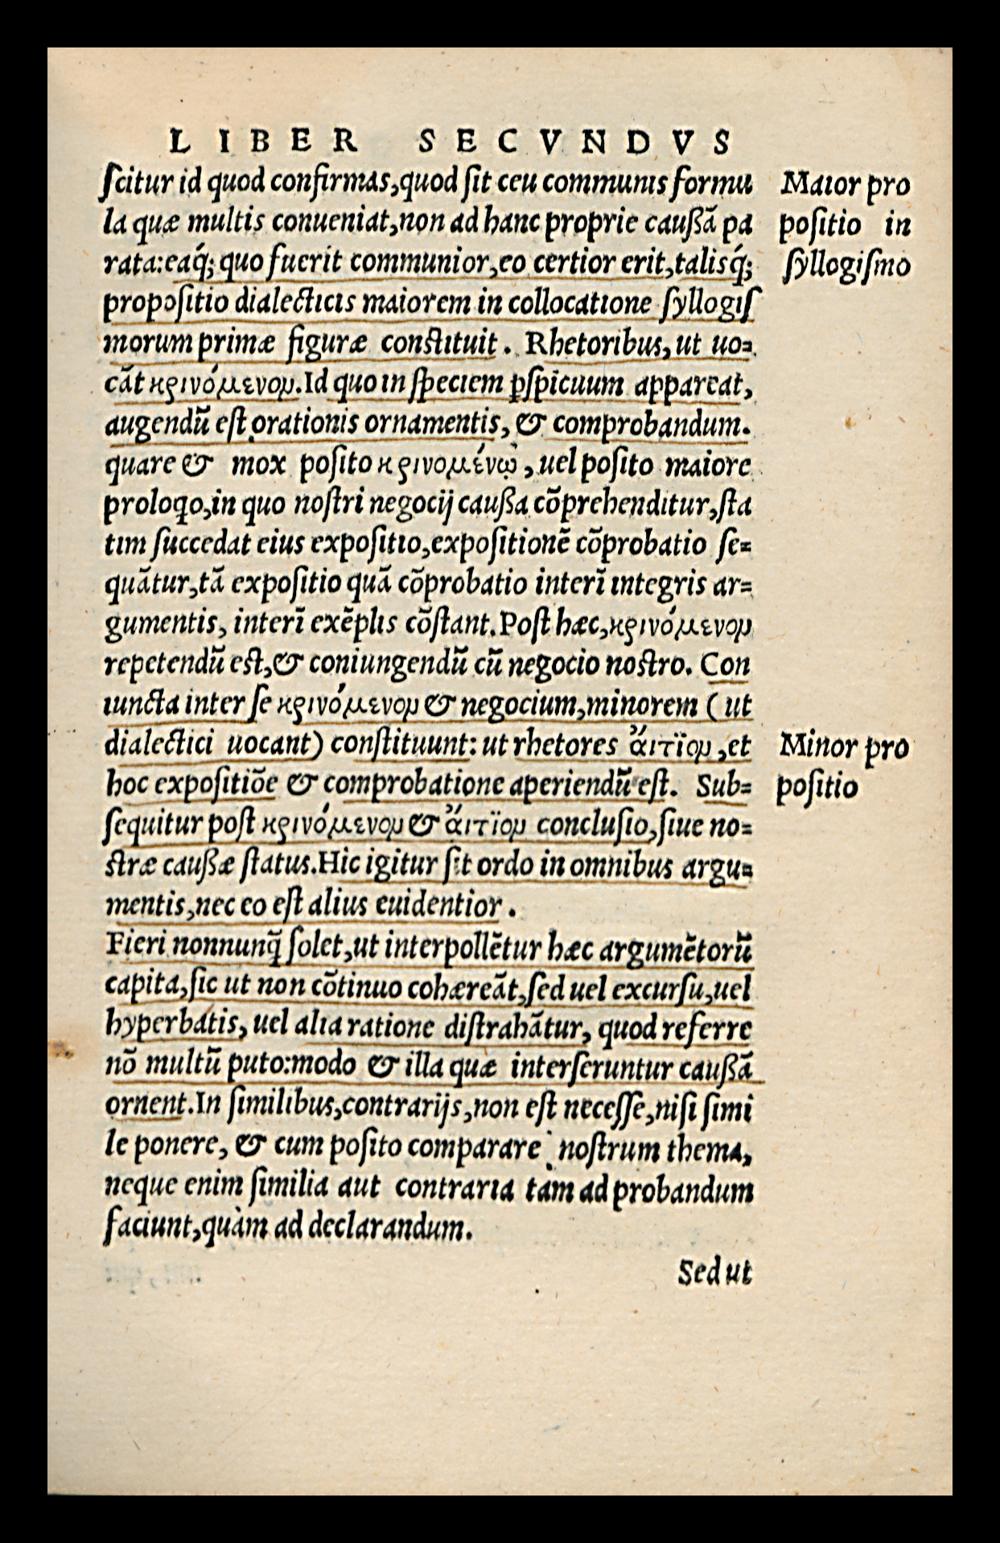 LIBER SECVNDVS
ſcitur id quod confirmas,quod ſit ceu communis formu
la quæ multis conueniat,non ad hanc proprie caußã pa
rata:eaq́; quo fuerit communior,eo certior erit,talisq́;
propoſitio dialecticis maiorem in collocatione ſyllogiſ
morum primæ figuræ conſtituit. Rhetoribus,ut uo=
cãt κρινόμενον.Id quo in ſpeciem ꝑſpicuum appareat,
augendũ eſt orationis ornamentis, & comprobandum.
quare & mox poſito κρινομένῳ,uel poſito maiore
proloqo,in quo noſtri negocij caußa cõprehenditur,ſta
tim ſuccedat eius expoſitio,expoſitionẽ cõprobatio ſe=
quãtur,tã expoſitio quã cõprobatio interĩ integris ar=
gumentis, interĩ exẽplis cõſtant.Poſt hæc,κρινόμενον
repetendũ eſt,& coniungendũ cũ negocio noſtro. Con
iuncta inter ſe κρινόμενον & negocium,minorem (ut
dialectici uocant) conſtituunt: ut rhetores ἄιτϊον,et
hoc expoſitiõe & comprobatione aperiendũ eſt. Sub=
ſequitur poſt κρινόμενον & ἄιτϊον concluſio,ſiue no=
ſtræ caußæ ſtatus.Hic igitur ſit ordo in omnibus argu=
mentis,nec eo eſt alius euidentior.
Fieri nonnunq̃ ſolet,ut interpollẽtur hæc argumẽtorũ
capita,ſic ut non cõtinuo cohæreãt,ſed uel excurſu,uel
hyperbatis, uel alia ratione diſtrahãtur, quod referre
nõ multũ puto:modo & illa quæ interſeruntur cauſſã
ornent.In ſimilibus,contrarijs,non eſt neceſſe,niſi ſimi
le ponere, & cum poſito comparare noſtrum thema,
neque enim ſimilia aut contraria tam ad probandum
faciunt,quàm ad declarandum.
Sed ut
Maior pro
poſitio in
ſyllogiſmo
Minor pro
poſitio